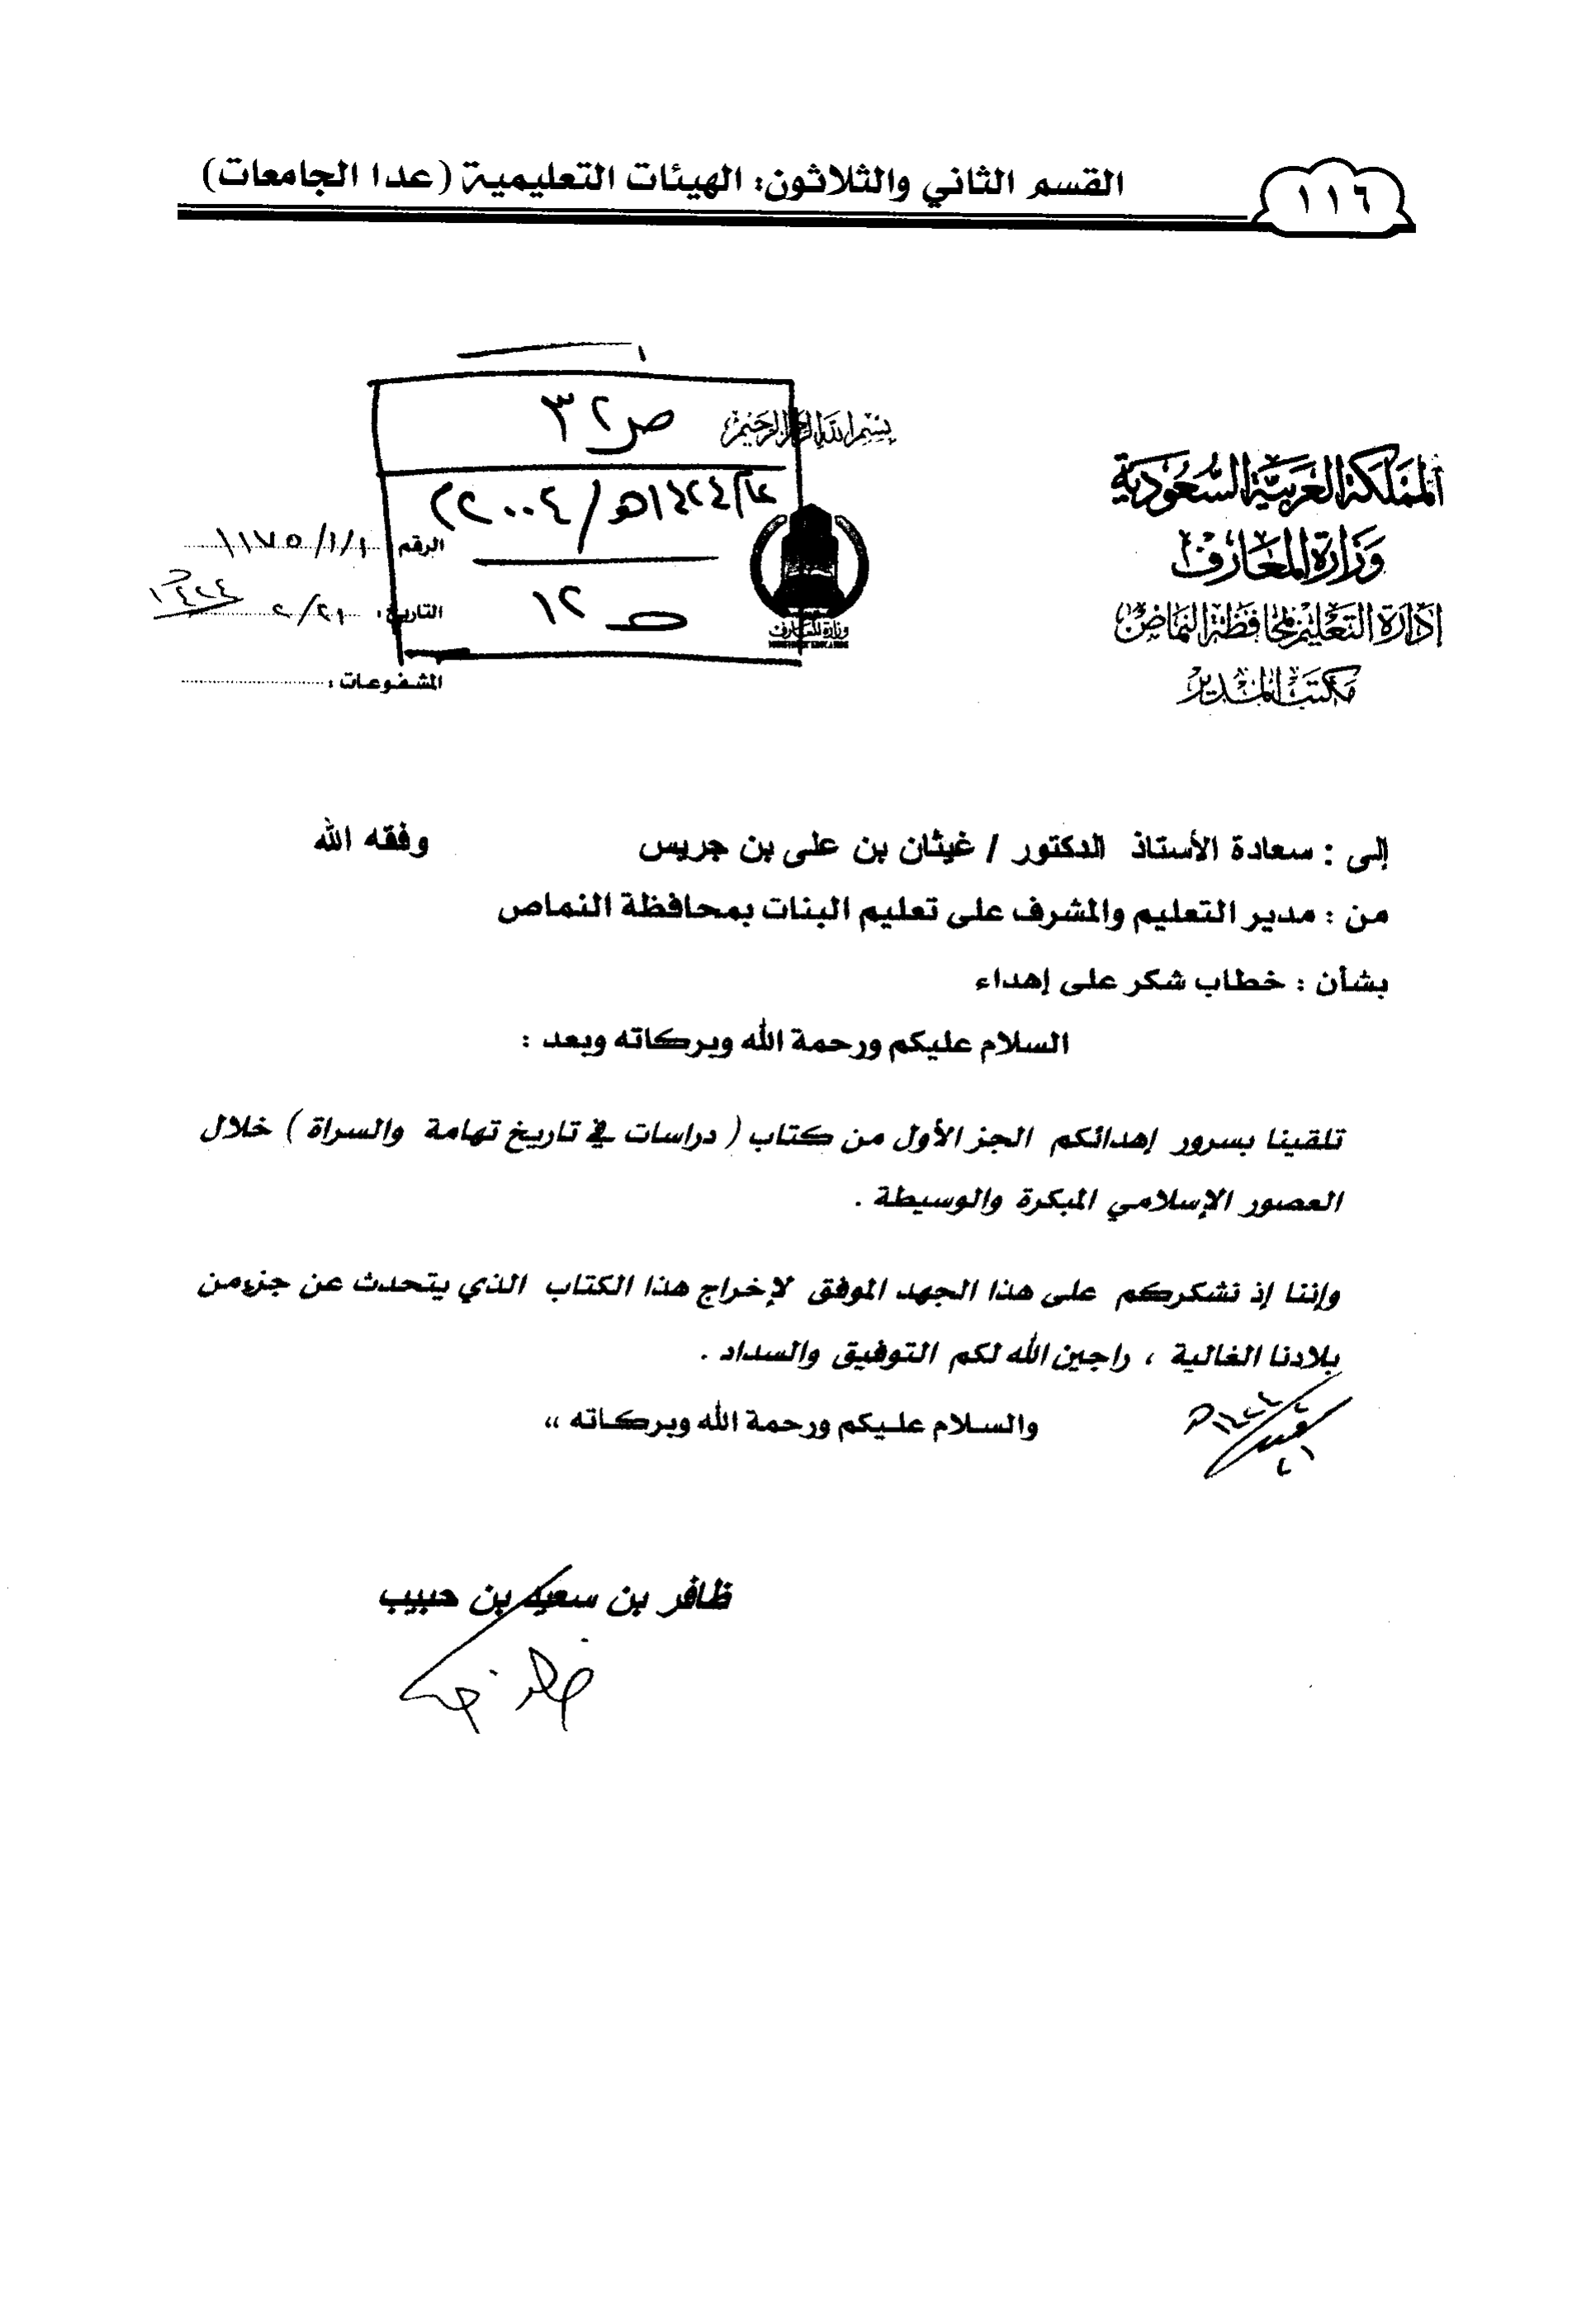 ١١٦
القسم الثاني والثلاثون: الهيئات التعليمية (عدا الجامعات)
بسم الله الرحمن الرحيم
المملكة العربية السعودية
وزارة المعارف
إدارة التعليم بمحافظة النماص
مكتب المدير
ص ٣٢
عام ١٤٢٤هـ/٢٠٠٤م
١٢
وزارة المعارف
الرقم ١١٧٥/١/١
التاريخ: ٢/٢١ ١٤٢٤هـ
المشفوعات:
إلى : سعادة الأستاذ الدكتور / غيثان بن على بن جريس وفقه الله
من : مدير التعليم والمشرف على تعليم البنات بمحافظة النماص
بشأن : خطاب شكر على إهداء
السلام عليكم ورحمة الله وبركاته وبعد :
تلقينا بسرور إهدائكم الجز الأول من كتاب ( دراسات في تاريخ تهامة والسراة ) خلال
العصور الإسلامي المبكرة والوسيطة .
وإننا إذ نشكركم على هذا الجهد الموفق لإخراج هذا الكتاب الذي يتحدث عن جزء من
بلادنا الغالية ، راجين الله لكم التوفيق والسداد .
والسلام عليكم ورحمة الله وبركاته ،،
ظافر بن سعيد بن حبيب